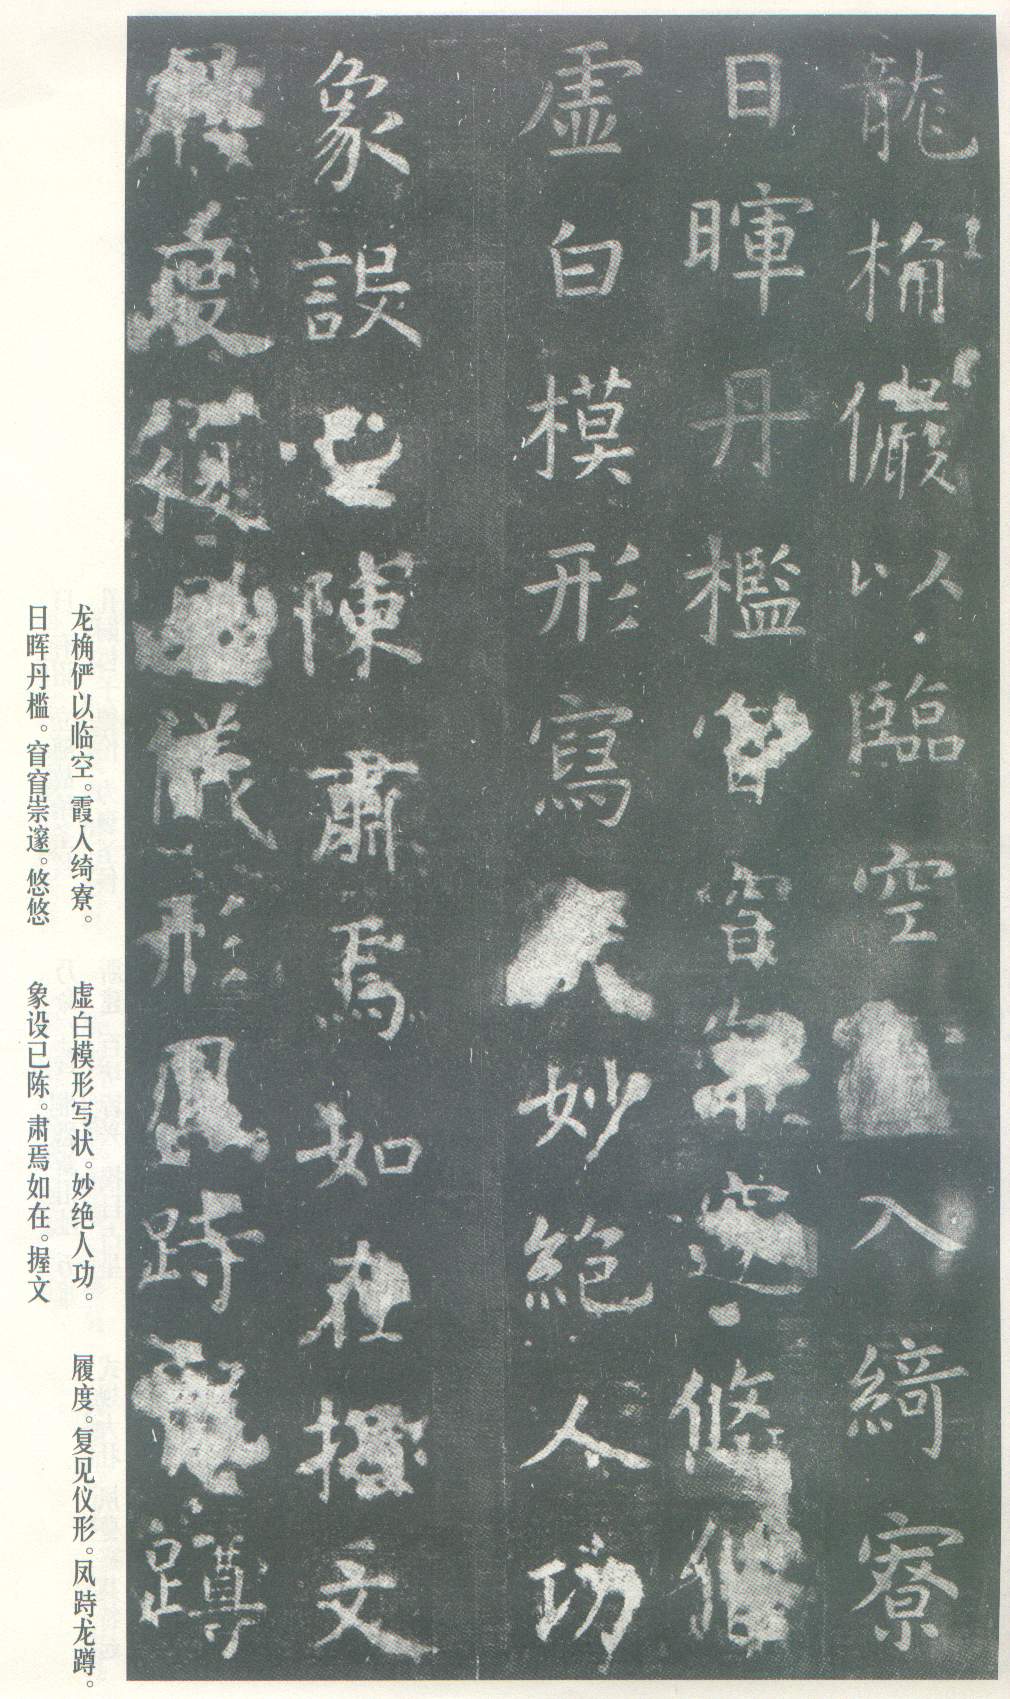 龍桷儼以臨空入綺寮
日暉丹檻窅窅崇邃悠悠
虛白模形寫妙絕人功
象設已陳肅焉如在握文
履度復見儀形鳳跱龍蹲
龙桷俨以临空。霞人绮寮。
日晖丹槛。窅窅崇邃。悠悠
虚白模形写状。妙绝人功。
象设已陈。肃焉如在。握文
履度。复见仪形。凤跱龙蹲。